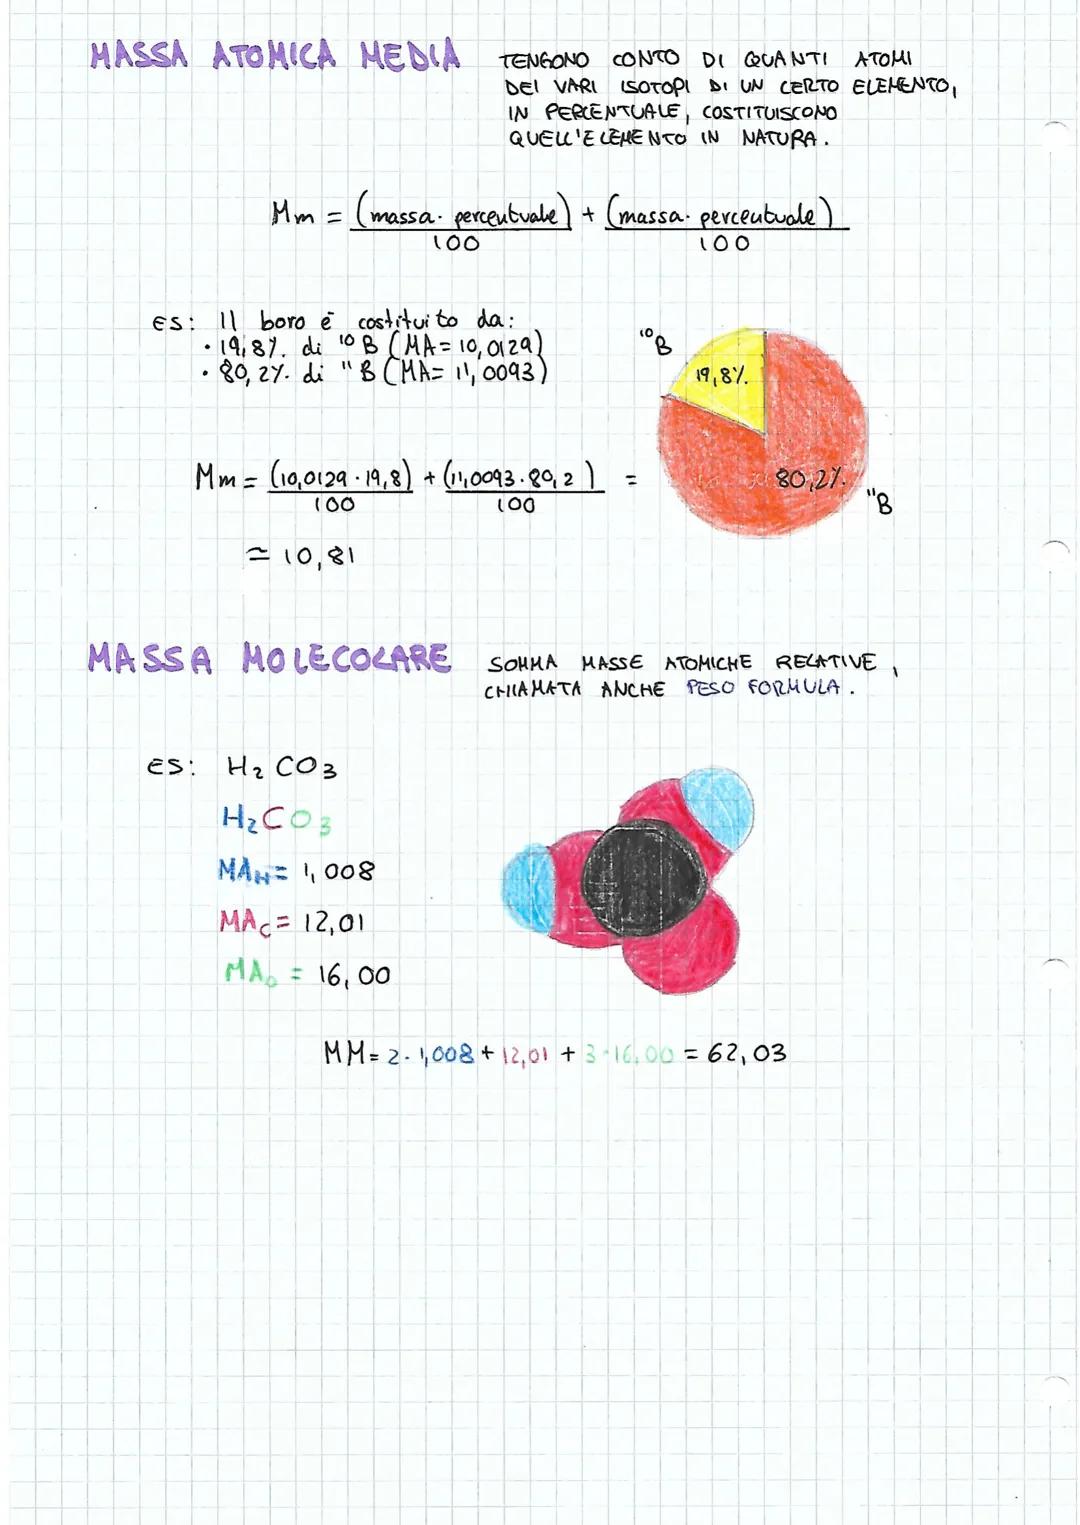 MASSA ATOMICA MEDIA
TENGONO CONTO DI QUANTI ATOMI
DEI VARI ISOTOPI DI UN CERTO ELEMENTO,
IN PERCENTUALE, COSTITUISCONO
QUELL'ELEMENTO IN NATURA.
Mm = (massa · percentuale)/100 + (massa · percentuale)/100
ES: Il boro è costituito da:
• 19,8% di ¹⁰B (MA = 10,0129)
• 80,2% di ¹¹B (MA = 11,0093)
¹⁰B
19,8%.
80,2%.
¹¹B
Mm = (10,0129 · 19,8)/100 + (11,0093 · 80,2)/100 =
≃ 10,81
MASSA MOLECOLARE
SOMMA MASSE ATOMICHE RELATIVE,
CHIAMATA ANCHE PESO FORMULA.
ES: H₂CO₃
H₂CO₃
MA_H = 1,008
MA_C = 12,01
MA_O = 16,00
MM = 2 · 1,008 + 12,01 + 3 · 16,00 = 62,03